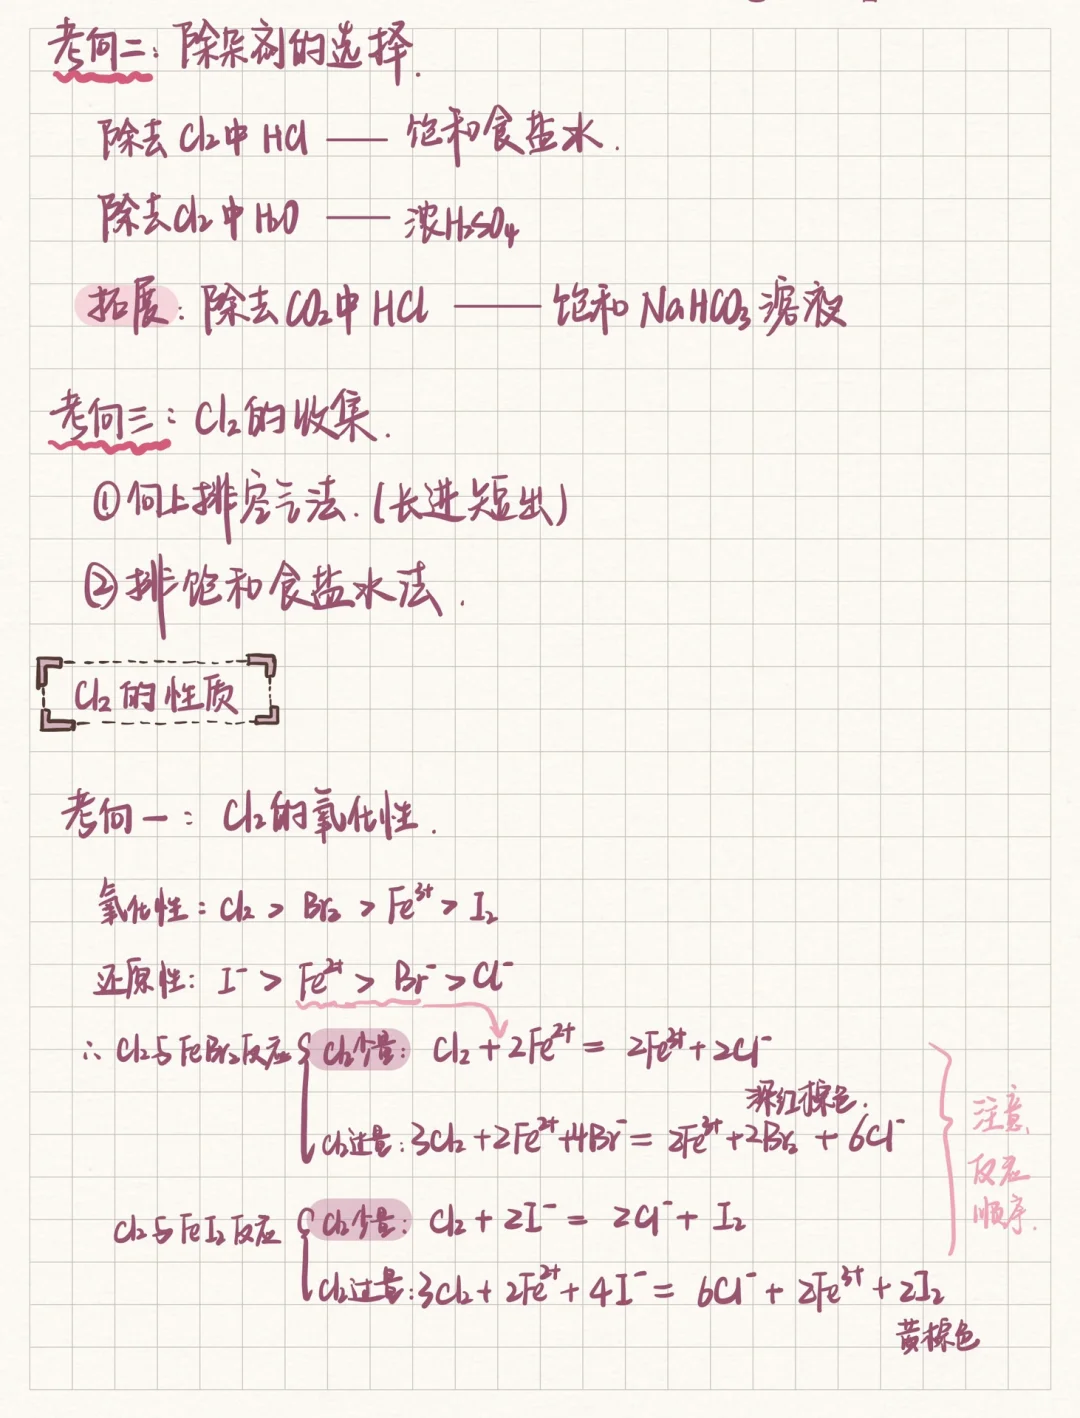 考向二：除杂剂的选择.
除去Cl₂中HCl —— 饱和食盐水.
除去Cl₂中H₂O —— 浓H₂SO₄
拓展：除去CO₂中HCl —— 饱和NaHCO₃溶液
考向三：Cl₂的收集.
①向上排空气法.(长进短出)
②排饱和食盐水法.
Cl₂的性质
考向一：Cl₂的氧化性.
氧化性：Cl₂ > Br₂ > Fe³⁺ > I₂
还原性：I⁻ > Fe²⁺ > Br⁻ > Cl⁻
∴ Cl₂与FeBr₂反应 { Cl₂少量：Cl₂ + 2Fe²⁺ = 2Fe³⁺ + 2Cl⁻
深红棕色.
Cl₂过量：3Cl₂ + 2Fe²⁺ + 4Br⁻ = 2Fe³⁺ + 2Br₂ + 6Cl⁻
Cl₂与FeI₂反应 { Cl₂少量：Cl₂ + 2I⁻ = 2Cl⁻ + I₂
Cl₂过量：3Cl₂ + 2Fe²⁺ + 4I⁻ = 6Cl⁻ + 2Fe³⁺ + 2I₂
黄棕色
注意
反应
顺序.